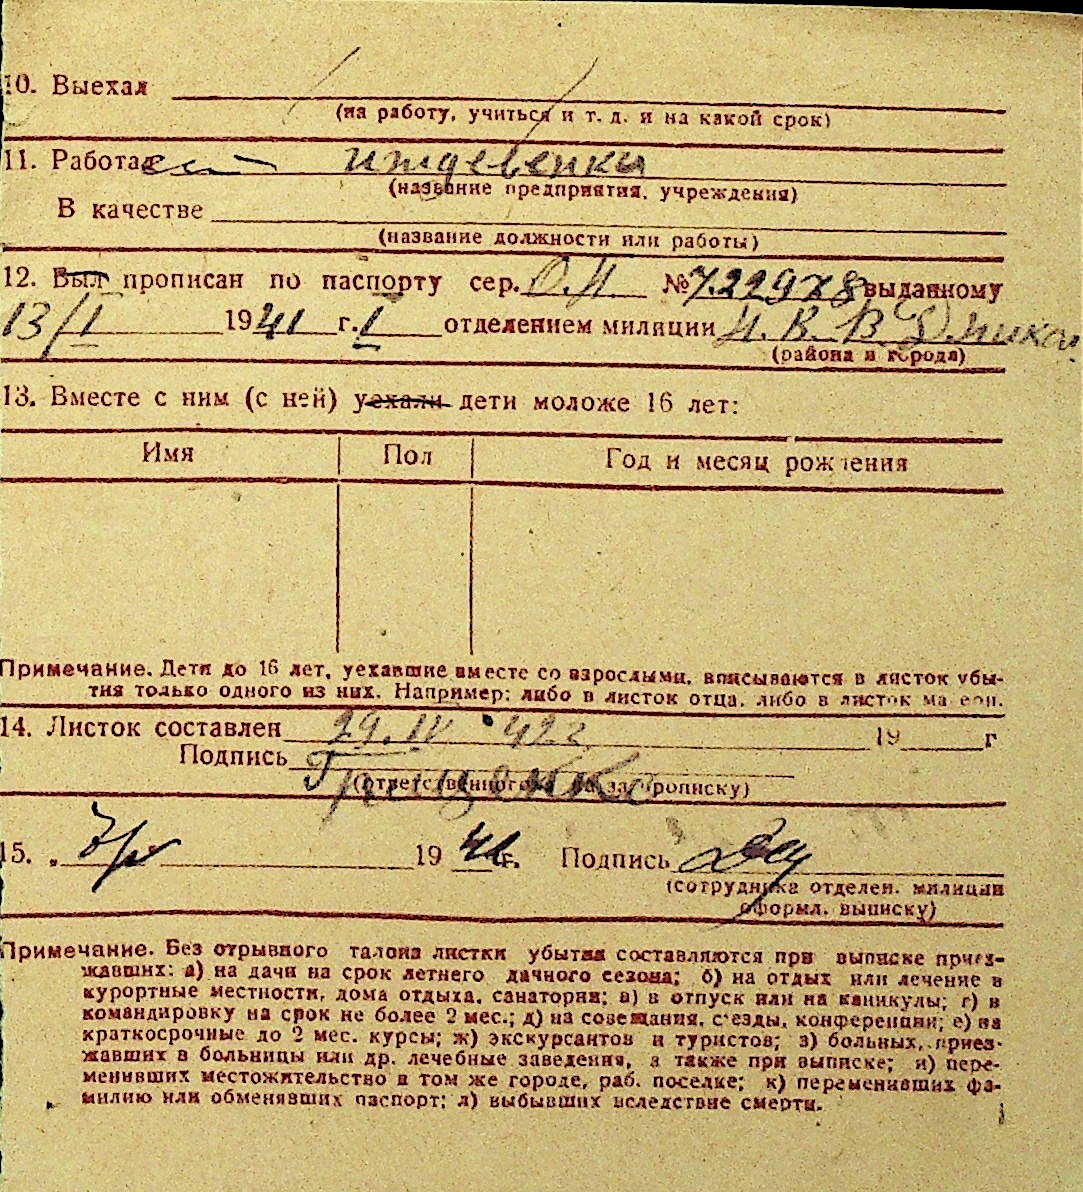 10. Выехал
(на работу, учиться и т. д. и на какой срок)
11. Работает иждевенка
(название предприятия, учреждения)
В качестве
(название должности или работы)
12. Был прописан по паспорту сер. О.И. № 722978 выданному
13/I 1941 г. I отделением милиции
(района и города)
13. Вместе с ним (с ней) уехали дети моложе 16 лет:
Имя Пол Год и месяц рождения
Примечание. Дети до 16 лет, уехавшие вместе со взрослыми, вписываются в листок убы-
тия только одного из них. Например: либо в листок отца, либо в листок матери.
14. Листок составлен 29.IV 42г 19 г
Подпись Грищенко
(ответственного за прописку)
15. 19 г. Подпись
(сотрудника отделен. милиции
оформл. выписку)
Примечание. Без отрывного талона листки убытия составляются при выписке приез-
жавших: а) на дачи на срок летнего дачного сезона; б) на отдых или лечение в
курортные местности, дома отдыха, санатории; в) в отпуск или на каникулы; г) в
командировку на срок не более 2 мес.; д) на совещания, съезды, конференции; е) на
краткосрочные до 2 мес. курсы; ж) экскурсантов и туристов; з) больных, приез-
жавших в больницы или др. лечебные заведения, а также при выписке; и) пере-
менивших местожительство в том же городе, раб. поселке; к) переменивших фа-
милию или обменявших паспорт; л) выбывших вследствие смерти.